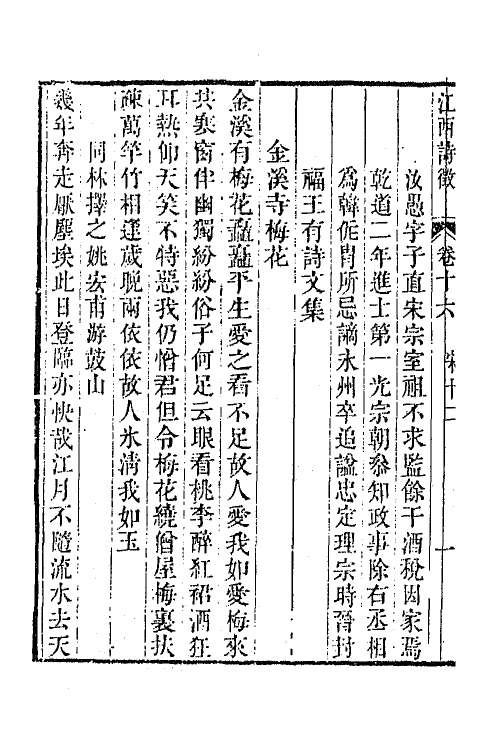 江西詩徵 卷十六 宋十二 一
汝愚字子直宋宗室祖不求監餘干酒稅因家焉
乾道二年進士第一光宗朝叅知政事除右丞相
爲韓侂冑所忌謫永州卒追諡忠定理宗時晉封
福王有詩文集
金溪寺梅花
金溪有梅花矗矗平生愛之看不足故人愛我如愛梅來
共寒窗伴幽獨紛紛俗子何足云眼看桃李醉紅裙酒狂
耳熱仰天笑不特惡我仍憎君但令梅花繞僧屋梅裏扶
疎萬竿竹相逢歲晚兩依依故人氷淸我如玉
同林擇之姚宏甫游鼓山
幾年奔走厭塵埃此日登臨亦快哉江月不隨流水去天